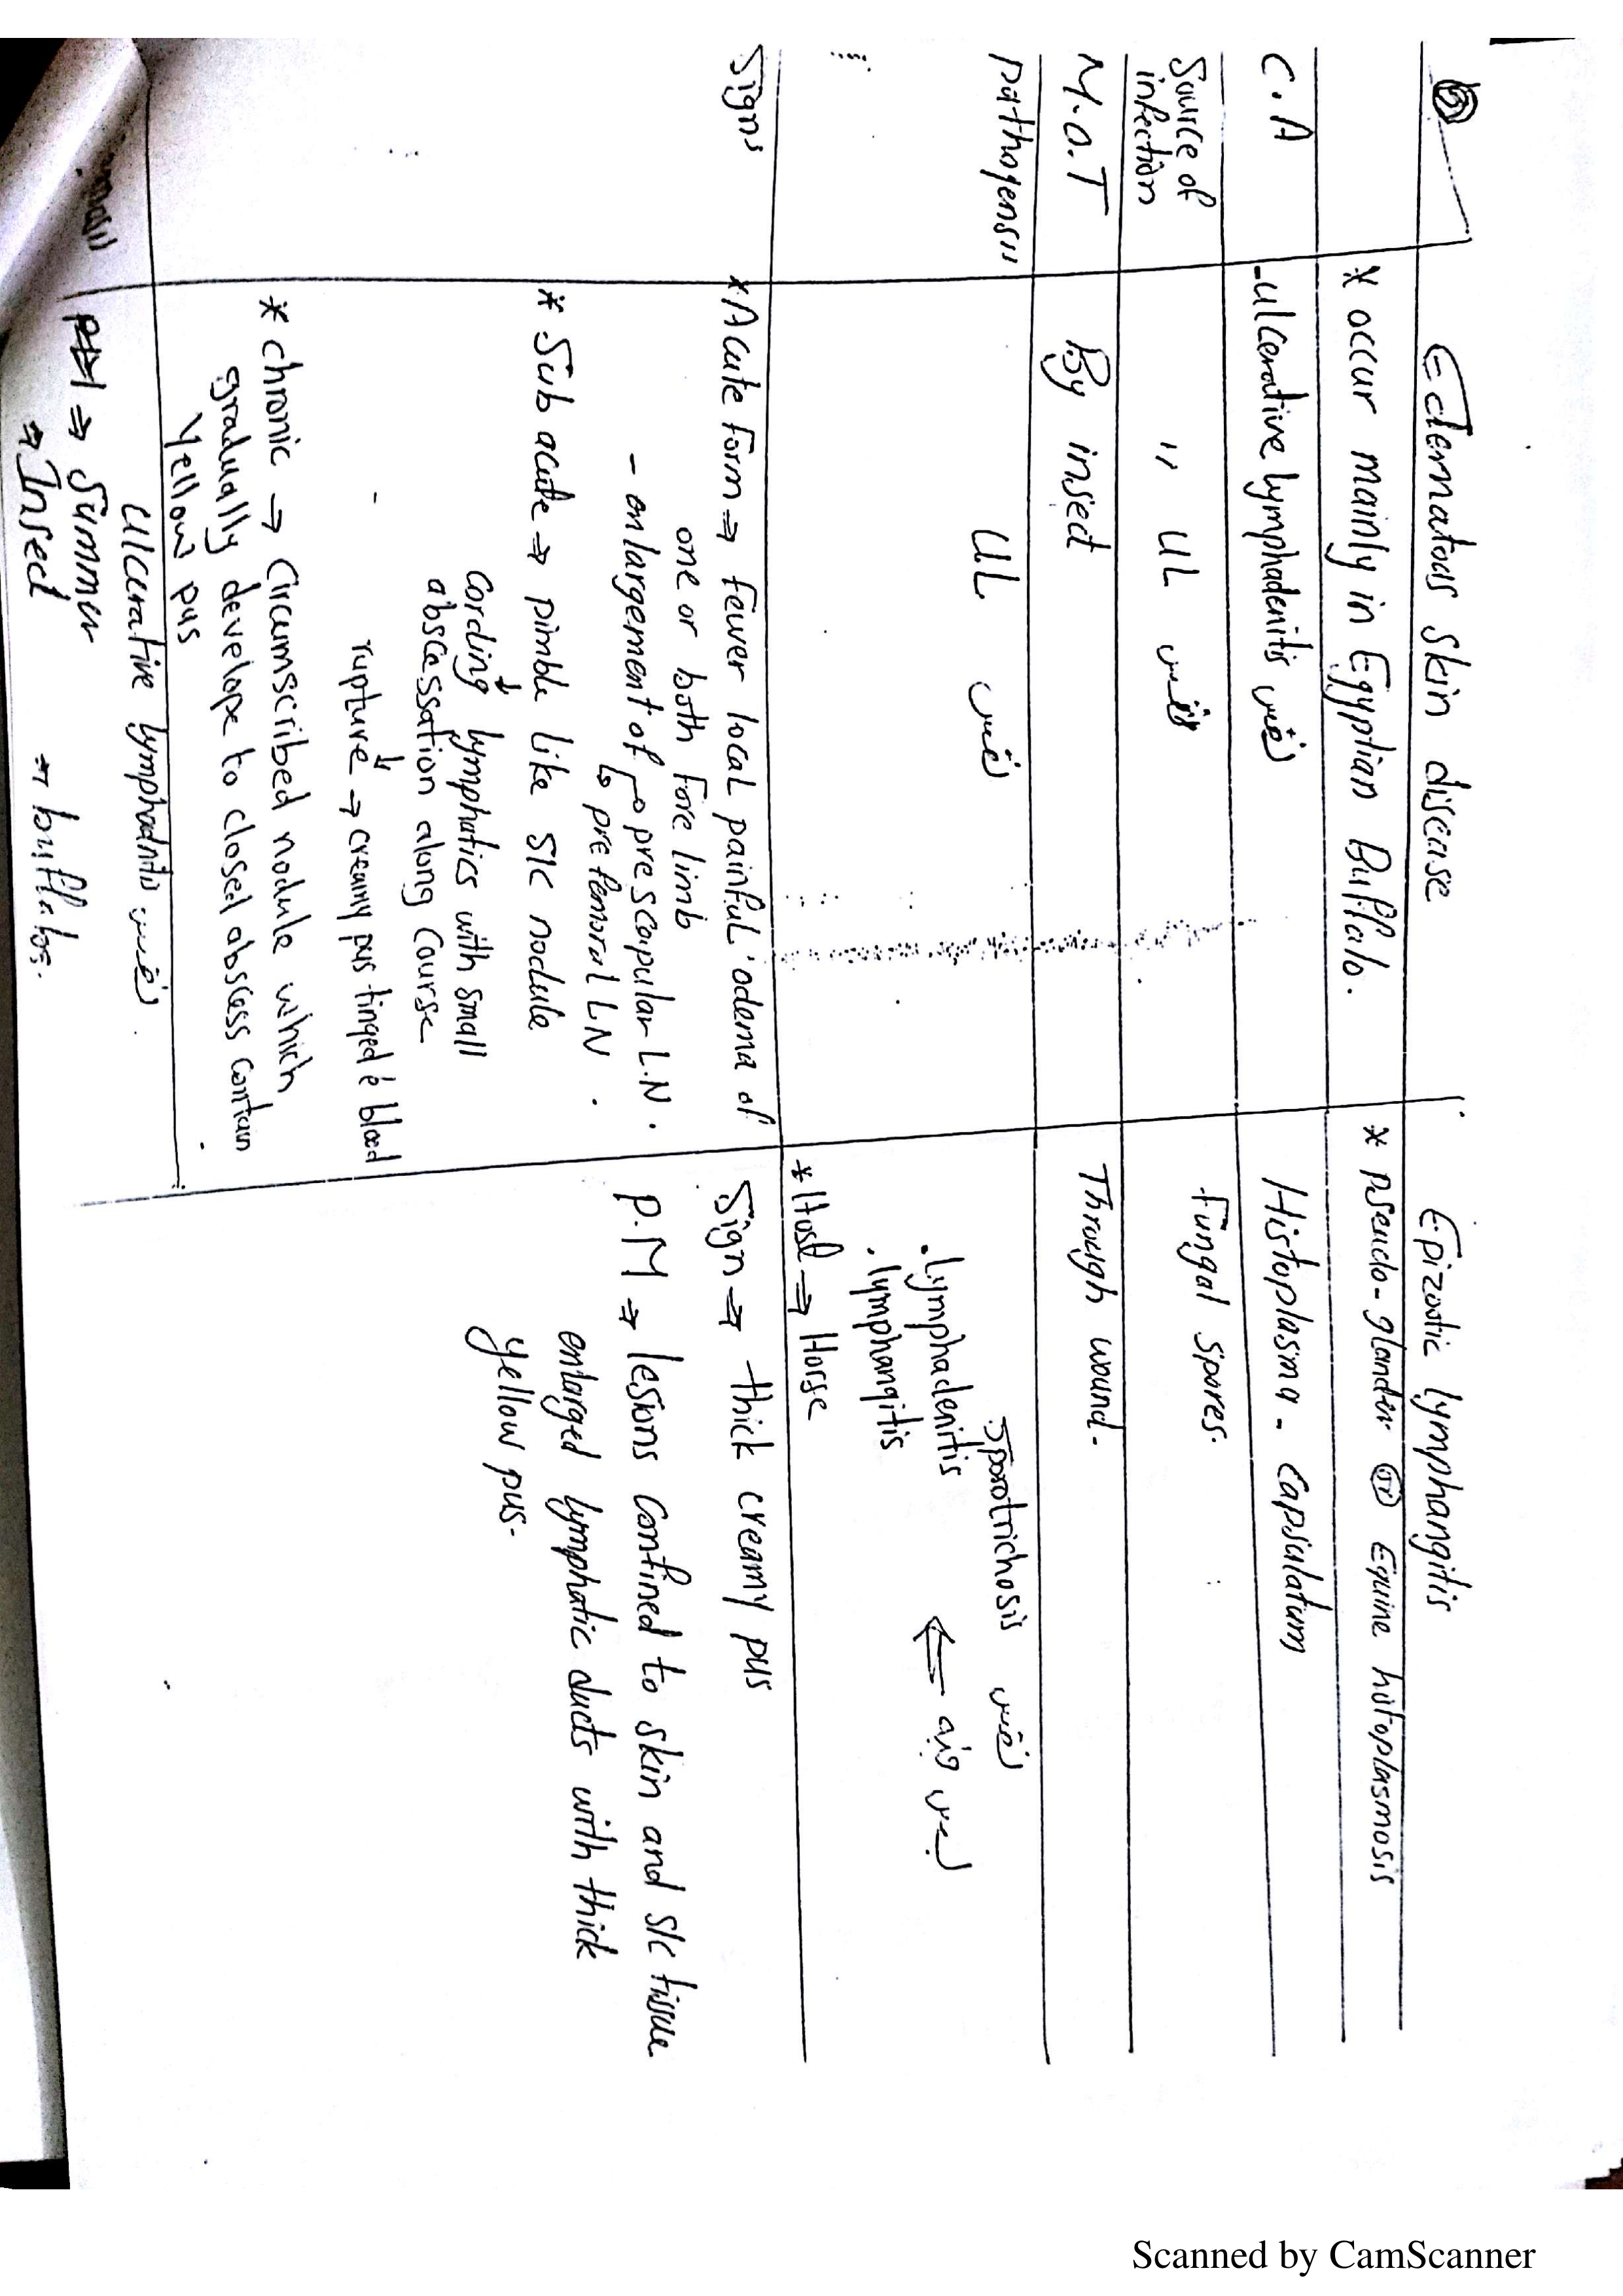 Edematous skin disease
Epizootic lymphangitis
* occur mainly in Egyptian Buffalo.
* pseudo-glander or Equine histoplasmosis
C.A
-ulcerative lymphadenitis نفس
Histoplasma - Capsulatum
Source of
infection
" UL نفس
Fungal spores.
M.O.T
By insect
Through wound.
pathogensis
UL نفس
sporotrichosis نفس
ليس فيه ←
. lymphadenitis
. lymphangitis
* Host ⇒ Horse
Signs
* Acute form ⇒ fewer local painful odema of
one or both fore limb
- enlargement of → pre scapular L.N.
↳ pre femoral LN.
* Sub acute ⇒ pimble like S/C nodule
↓
Cording lymphatics with small
abscessation along course
↓
rupture → creamy pus tinged é blood
* chronic → Circumscribed nodule which
gradually develope to closed abscess contain
yellow pus
Sign ⇒ thick creamy pus
P.M ⇒ lesions confined to skin and S/c tissue
enlarged lymphatic ducts with thick
yellow pus.
Ulcerative lymphadnitis نفس
⇒ Summer
⇒ Insect
⇒ buffalos.
Scanned by CamScanner